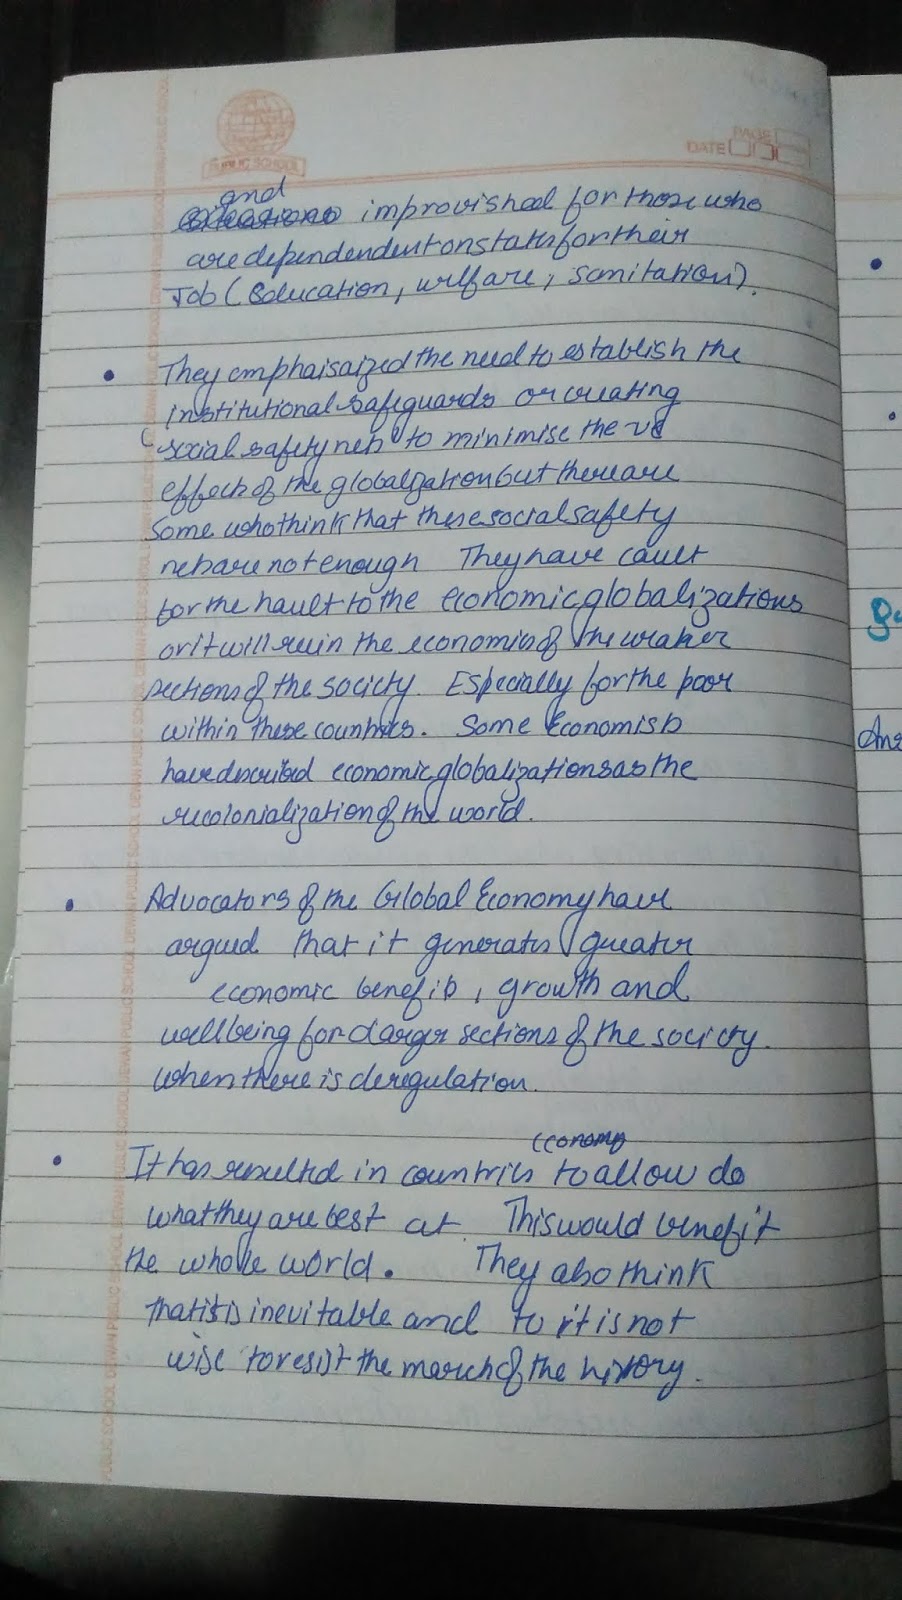 PUBLIC SCHOOL
PAGE
DATE
and
improvished for those who
are dependendent on states for their
Job (Education, welfare, sanitation).
They emphaisaized the need to establish the
institutional safeguards or creating
social safety nets to minimise the -ve
effects of the globalization but there are
some who think that these social safety
nets are not enough They have cault
for the hault to the economic globalizations
or it will ruin the economies of the weaker
sections of the society. Especially for the poor
within these countries. Some Economists
have described economic globalizations as the
recolonialization of the world.
Advocators of the Global Economy have
argued that it generates greater
economic benefits, growth and
wellbeing for larger sections of the society.
when there is deregulation.
economy
It has resulted in countries to allow do
what they are best at. This would benefit
the whole world. They also think
that it is inevitable and to it is not
wise to resist the march of the history.
Ans
PUBLIC SCHOOL DEWAN PUBLIC SCHOOL DEWAN PUBLIC SCHOOL DEWAN PUBLIC SCHOOL DEWAN PUBLIC SCHOOL